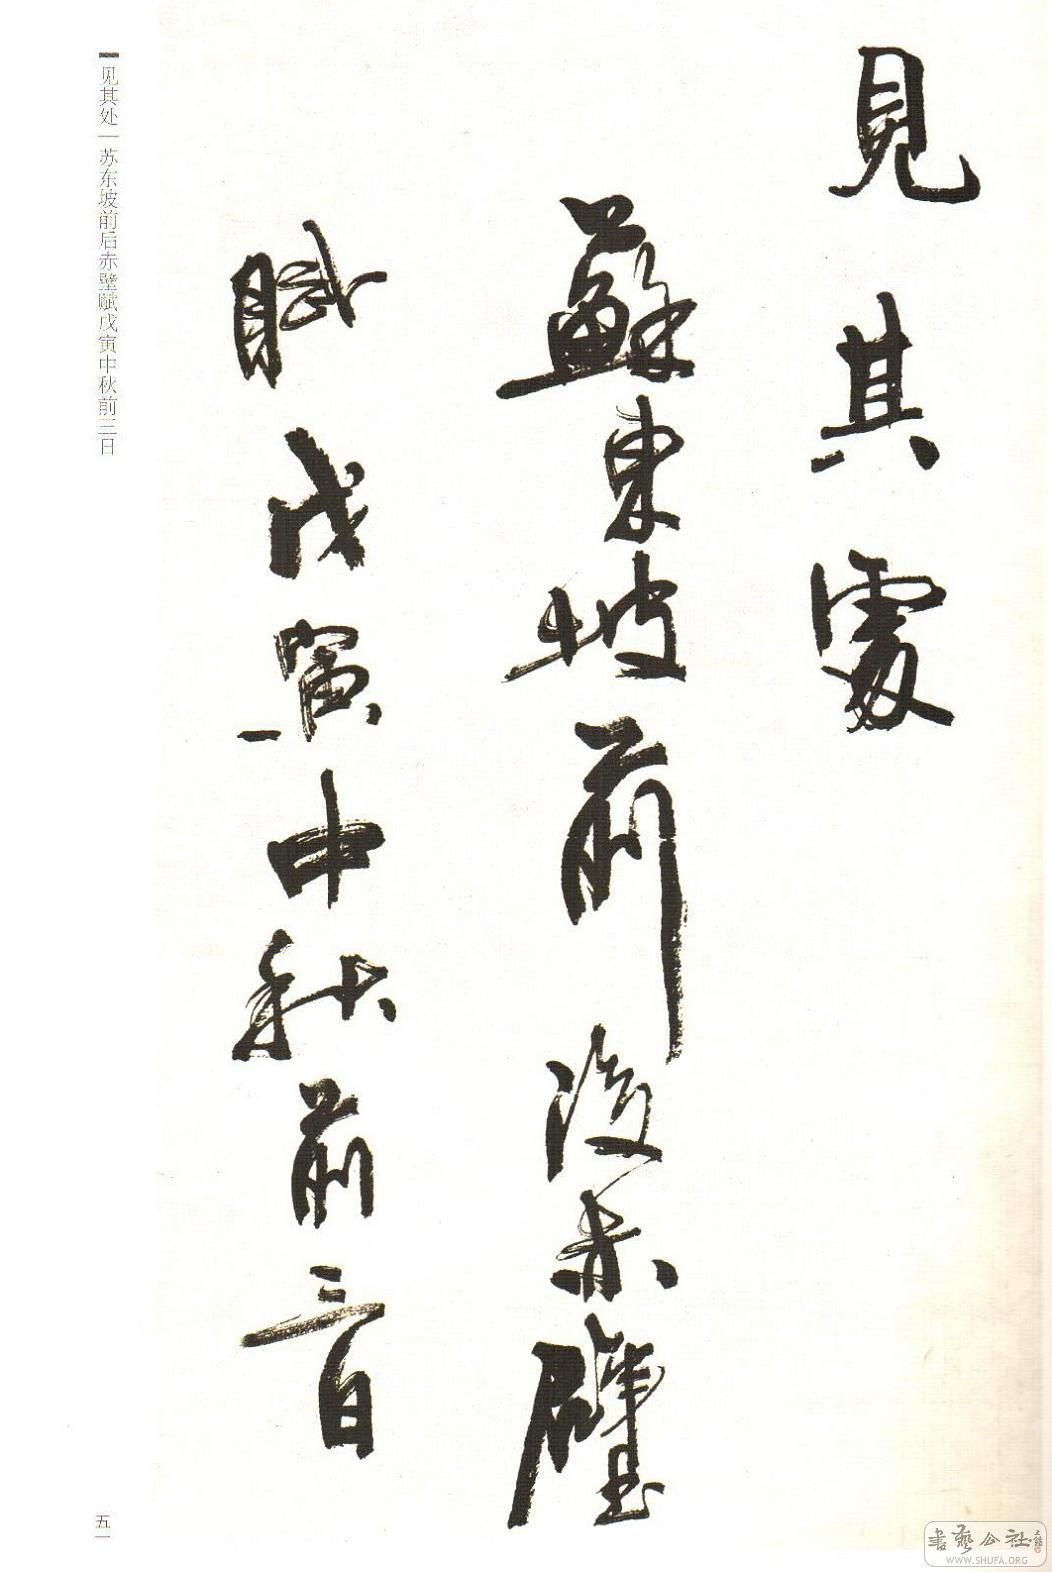 見其處
蘇東坡前後赤壁
賦戊寅中秋前三日
见其处|苏东坡前后赤壁赋戊寅中秋前三日
五一
書藝公社
WWW.SHUFA.ORG